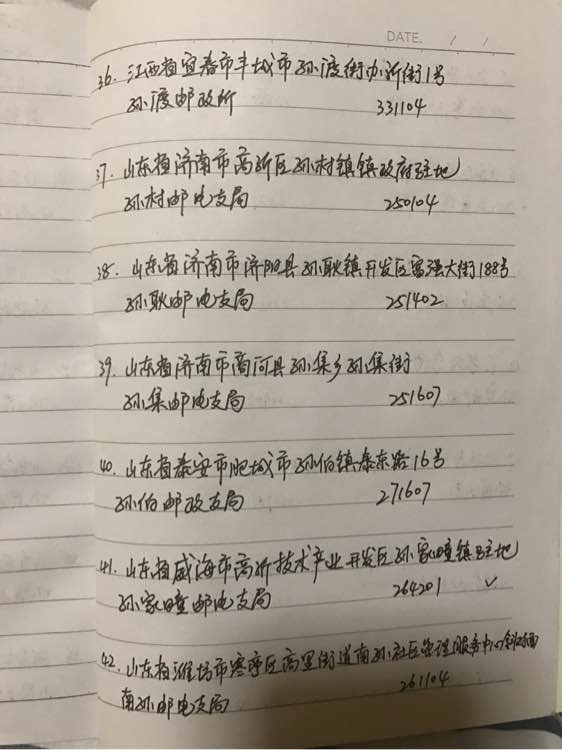 DATE. / /
36. 江西省宜春市丰城市孙渡街办沂街1号
孙渡邮政所 331104
37. 山东省济南市高新区孙村镇镇政府驻地
孙村邮电支局 250104
38. 山东省济南市济阳县孙耿镇开发区富强大街188号
孙耿邮电支局 251402
39. 山东省济南市商河县孙集乡孙集街
孙集邮电支局 251607
40. 山东省泰安市肥城市孙伯镇泰东路16号
孙伯邮政支局 271607
41. 山东省威海市高新技术产业开发区孙家疃镇驻地
孙家疃邮电支局 264201 ✓
42. 山东省潍坊市寒亭区高里街道南孙社区管理服务中心斜对面
南孙邮电支局 261104